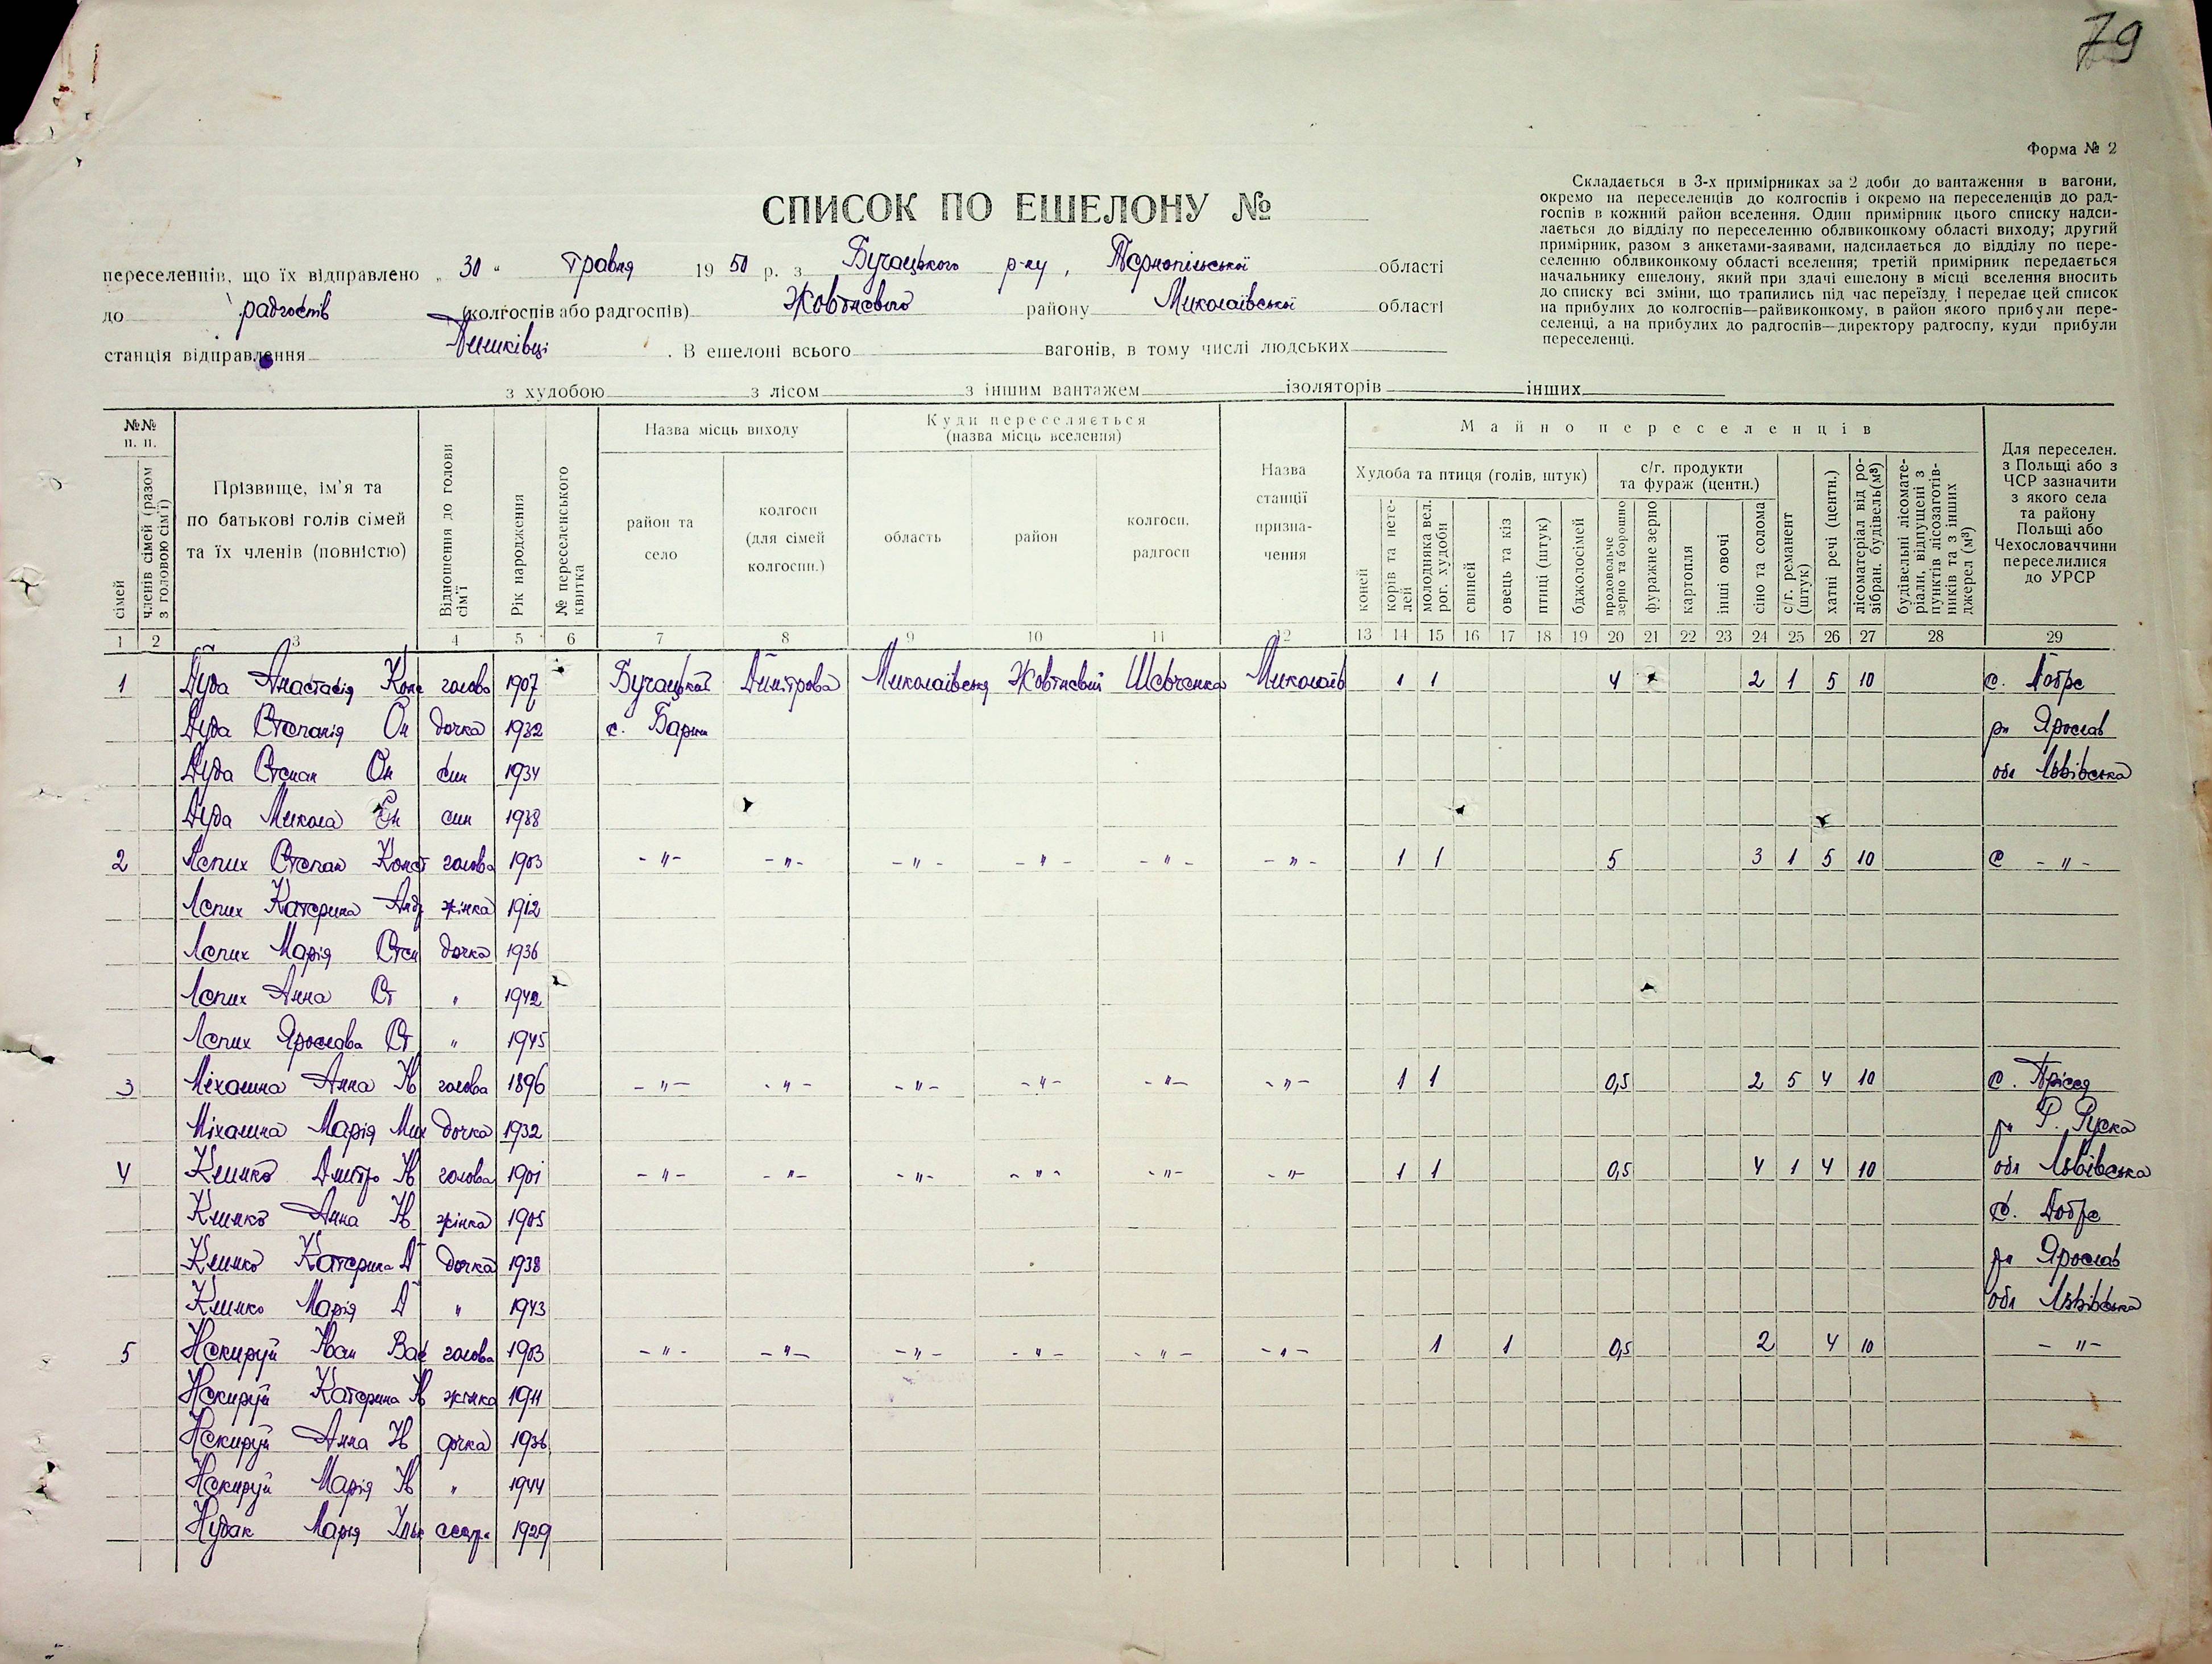 79
Форма № 2
СПИСОК ПО ЕШЕЛОНУ №
Складається в 3-х примірниках за 2 доби до вантаження в вагони,
окремо на переселенців до колгоспів і окремо на переселенців до рад-
госпів в кожний район вселення. Один примірник цього списку надси-
лається до відділу по переселенню облвиконкому області виходу; другий
примірник, разом з анкетами-заявами, надсилається до відділу по пере-
селенню облвиконкому області вселення; третій примірник передається
начальнику ешелону, який при здачі ешелону в місці вселення вносить
до списку всі зміни, що трапились під час переїзду, і передає цей список
на прибулих до колгоспів—райвиконкому, в район якого прибули пере-
селенці, а на прибулих до радгоспів—директору радгоспу, куди прибули
переселенці.
переселенців, що їх відправлено „ 30 " травня 19 50 р. з Бучацького р-ну, Тернопільської області
до радгоспів (колгоспів або радгоспів) Жовтневого району Миколаївської області
станція відправлення Пишківці . В ешелоні всього вагонів, в тому числі людських
з худобою з лісом з іншим вантажем ізоляторів інших
№№ п. п.
сімей
членів сімей (разом з головою сім'ї)
Прізвище, ім'я та
по батькові голів сімей
та їх членів (повністю)
Відношення до голови сім'ї
Рік народження
№ переселенського квитка
Назва місць виходу
район та село
колгосп (для сімей колгоспн.)
Куди переселяється
(назва місць вселення)
область
район
колгосп, радгосп
Назва станції призна-чення
Майно переселенців
Худоба та птиця (голів, штук)
коней
корів та нете-лей
молодняка вел. рог. худоби
свиней
овець та кіз
птиці (штук)
бджолосімей
с/г. продукти
та фураж (центн.)
продовольче зерно та борошно
фуражне зерно
картопля
інші овочі
сіно та солома
с/г. реманент (штук)
хатні речі (центн.)
лісоматеріал від ро-зібран. будівель(м³)
будівельні лісомате-ріали, відпущені з пунктів лісозаготів-ників та з інших джерел (м³)
Для переселен.
з Польщі або з
ЧСР зазначити
з якого села
та району
Польщі або
Чехословаччини
переселилися
до УРСР
1 2 3 4 5 6 7 8 9 10 11 12 13 14 15 16 17 18 19 20 21 22 23 24 25 26 27 28 29
1 Дуда Анастасія Конс голова 1907 Бучацький Димітрова Миколаївська Жовтневий Шевченка Миколаїв 1 1 4 2 1 5 10 с. Добре
Дуда Степанія Он дочка 1932 с. Бариш рн Ярослав
Дуда Степан Он син 1934 обл Львівська
Дуда Микола Он син 1938
2 Лепих Степан Конст голова 1903 -"- -"- -"- -"- -"- -"- 1 1 5 3 1 5 10 с -"-
Лепих Катерина Андр жінка 1912
Лепих Марія Степ дочка 1936
Лепих Анна Ст " 1942
Лепих Ярослава Ст " 1945
3 Міхаліна Анна И голова 1896 -"- -"- -"- -"- -"- -"- 1 1 0,5 2 5 4 10 с.
Міхаліна Марія Мих дочка 1932 рн Р. Руска
4 Климко Дмитро И голова 1901 -"- -"- -"- -"- -"- -"- 1 1 0,5 4 1 4 10 обл Львівська
Климко Анна И жінка 1905 с. Добре
Климко Катерина Д дочка 1938 рн Ярослав
Климко Марія Д " 1943 обл Львівська
5 Нокируй Іван Вас голова 1903 -"- -"- -"- -"- -"- -"- 1 1 0,5 2 4 10 -"-
Катерина И жінка 1911
Анна И дочка 1936
Марія И " 1944
Марія Ільк сестра 1929